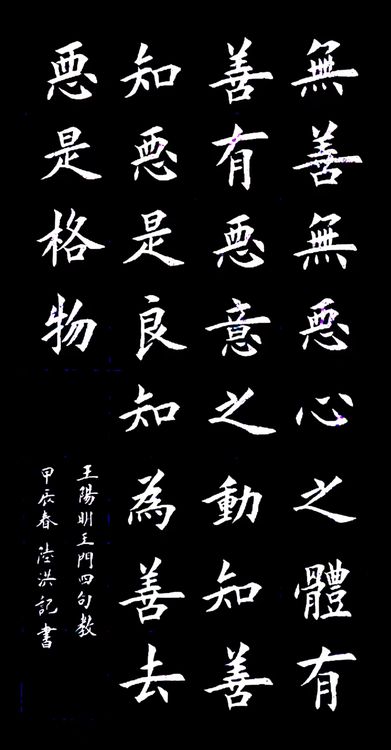 無善無惡心之體有
善有惡意之動知善
知惡是良知為善去
惡是格物
王陽明王門四句教
甲辰春陸洪記書